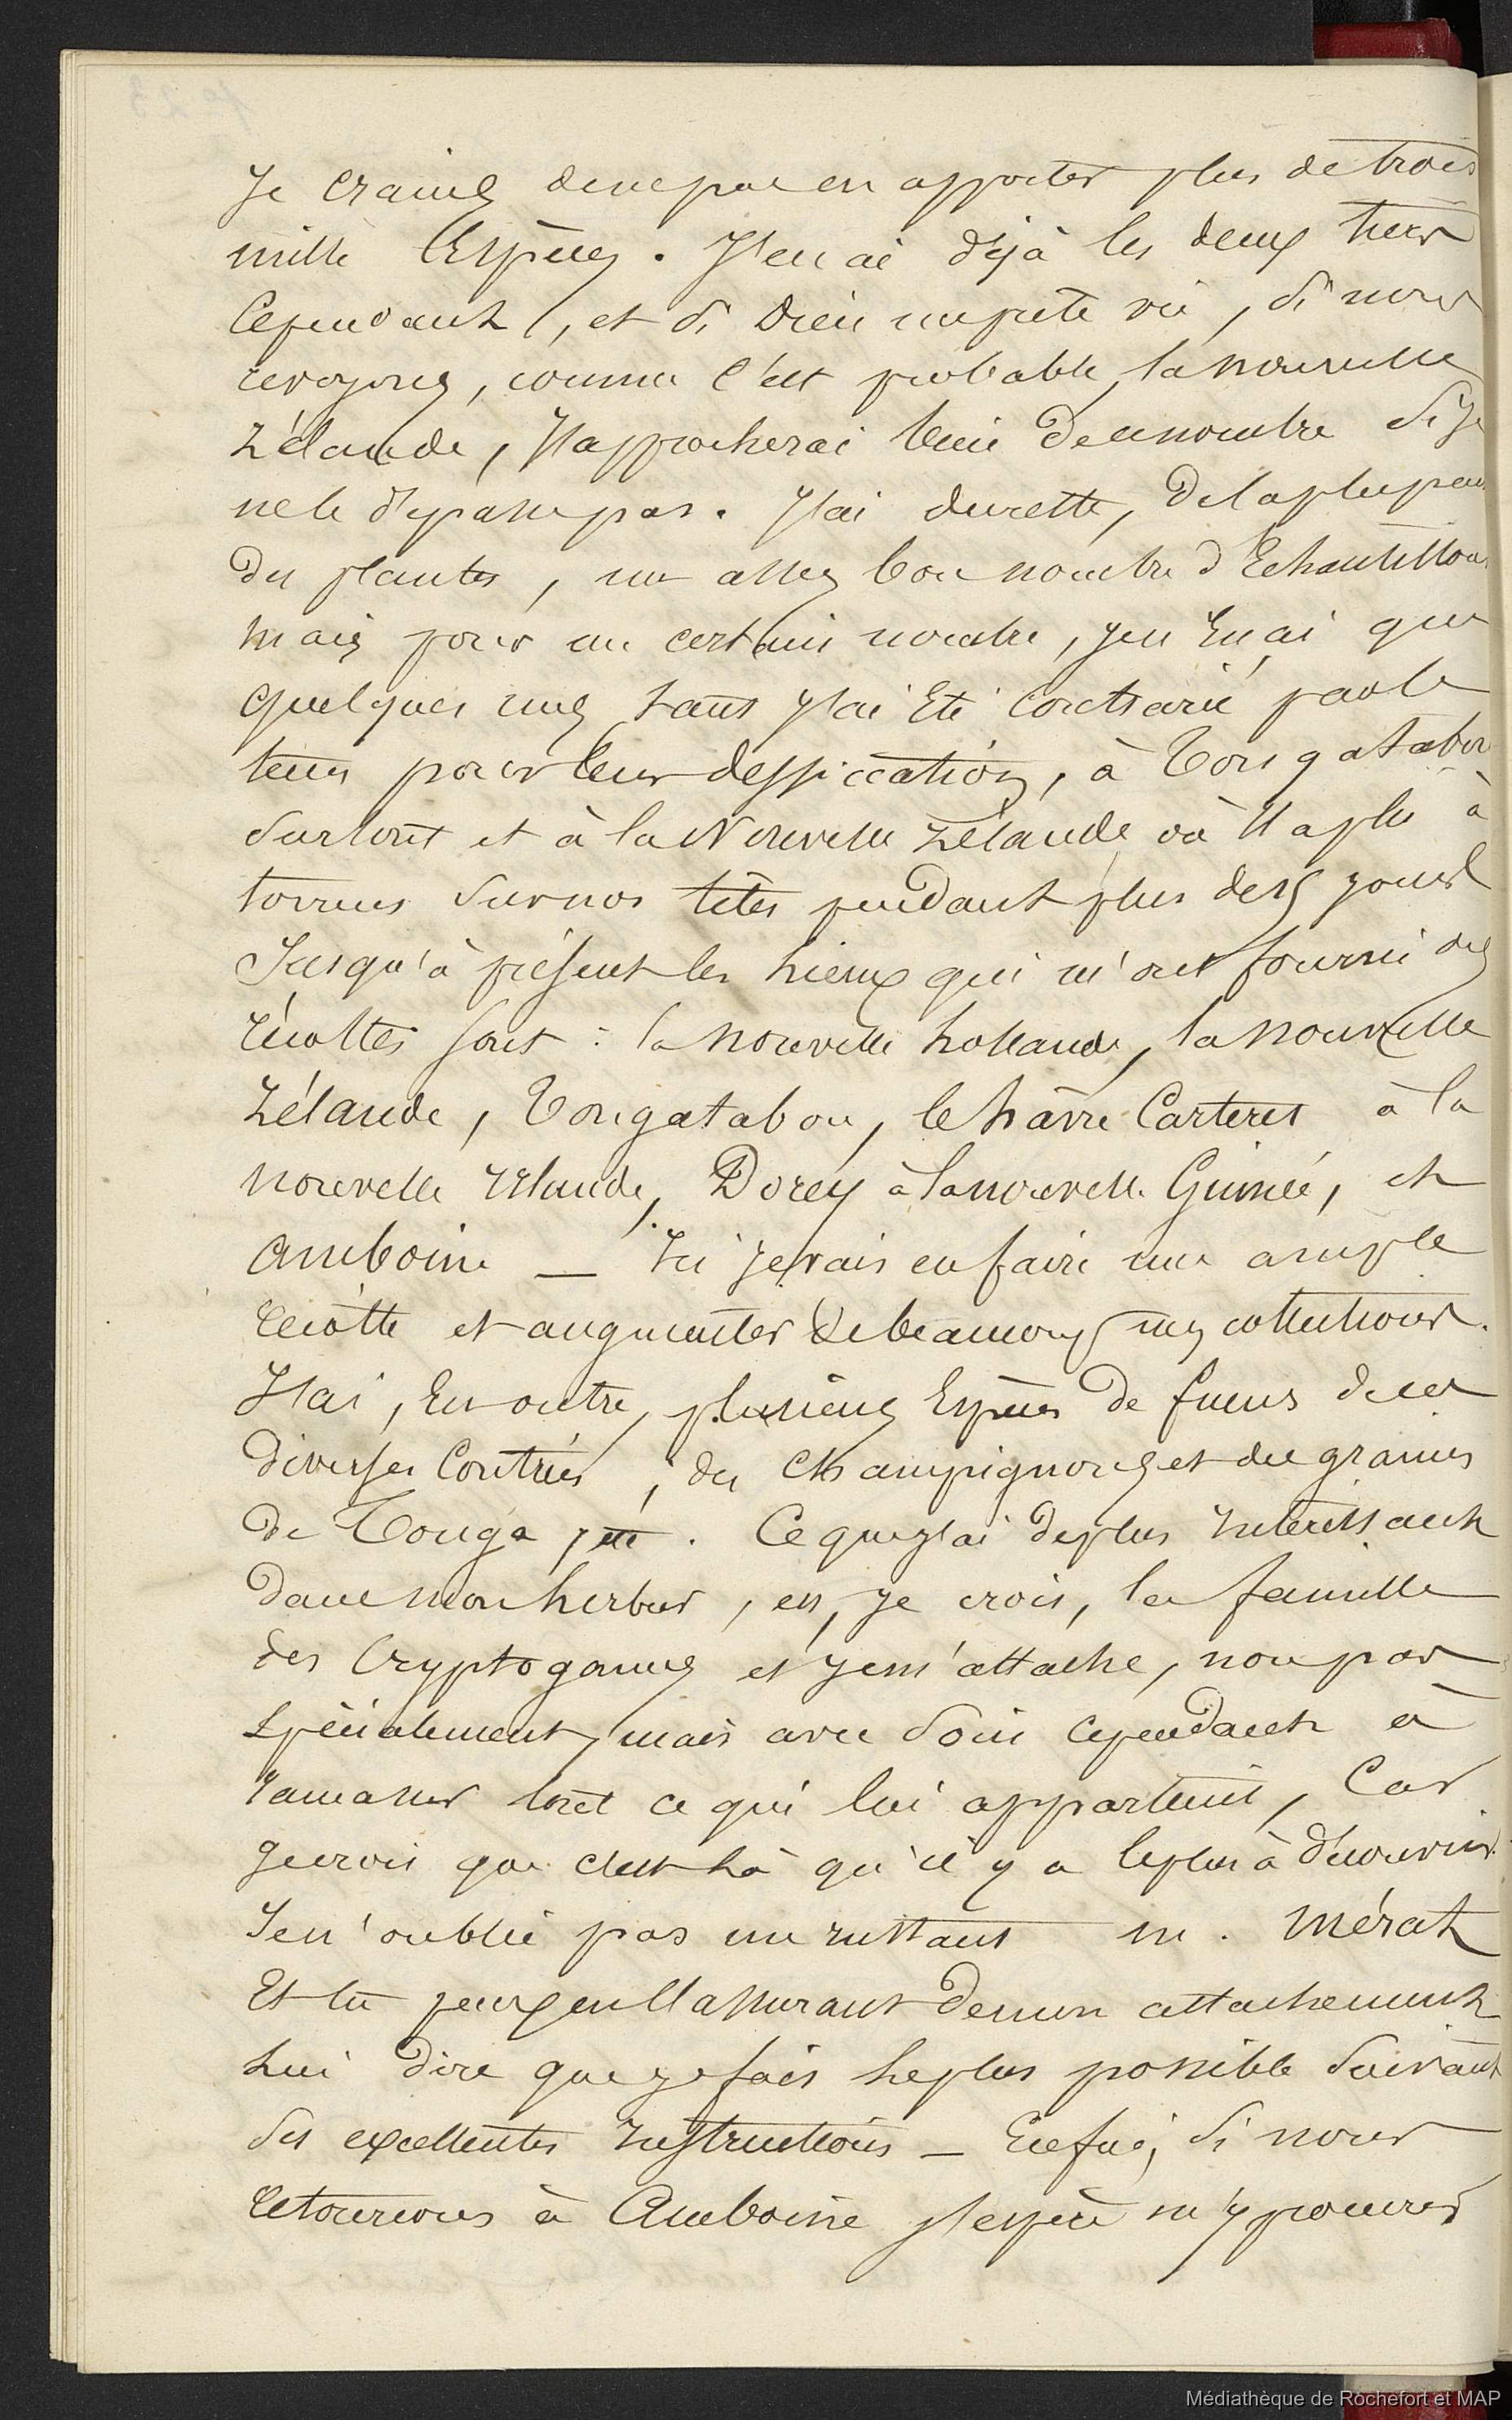 Je crains de ne pas en apporter plus de trois
mille Espèces. J'en ai déjà les deux tiers
Cependant, et si Dieu me prête vie, si nous
revoyons, comme c'est probable, la nouvelle
Zélande, J'approcherai bien de ce nombre si Je
ne le dépasse pas. J'ai du reste, de la plupart
des plantes, un assez bon nombre d'Echantillons
mais pour un certain nombre, je n'en ai que
quelques uns tant j'ai été contrarié par le
tems pour leur dessiccation, à Tongatabou
surtout et à la Nouvelle Zélande où il a plu à
torrens sur nos têtes pendant plus de 15 jours
Jusqu'à présent les lieux qui m'ont fourni des
récoltes sont : la nouvelle hollande, la nouvelle
Zélande, Tongatabou, le hâvre Carteret à la
nouvelle Irlande, Dorey à la nouvelle Guinée, et
Amboine — Ici je vais en faire une ample
récolte et augmenter de beaucoup mes collections.
J'ai, En outre, plusieurs Espèces de fucus de ces
diverses Contrées, des Champignons et des graines
de Tonga, etc. Ce que j'ai de plus Intéressant
dans mon herbier, est, je crois, la famille
des Cryptogames et je m'attache, non pas
spécialement, mais avec soin cependant à
ramasser tout ce qui lui appartient, Car
je crois que c'est là qu'il y a le plus à découvrir.
Je n'oublie pas un instant M. Mérat
Et tu peux en l'assurant de mon attachement
lui dire que je fais le plus possible suivant
ses excellentes Instructions — Enfin, si nous
retournons à Amboine j'espère m'y procurer
Médiathèque de Rochefort et MAP